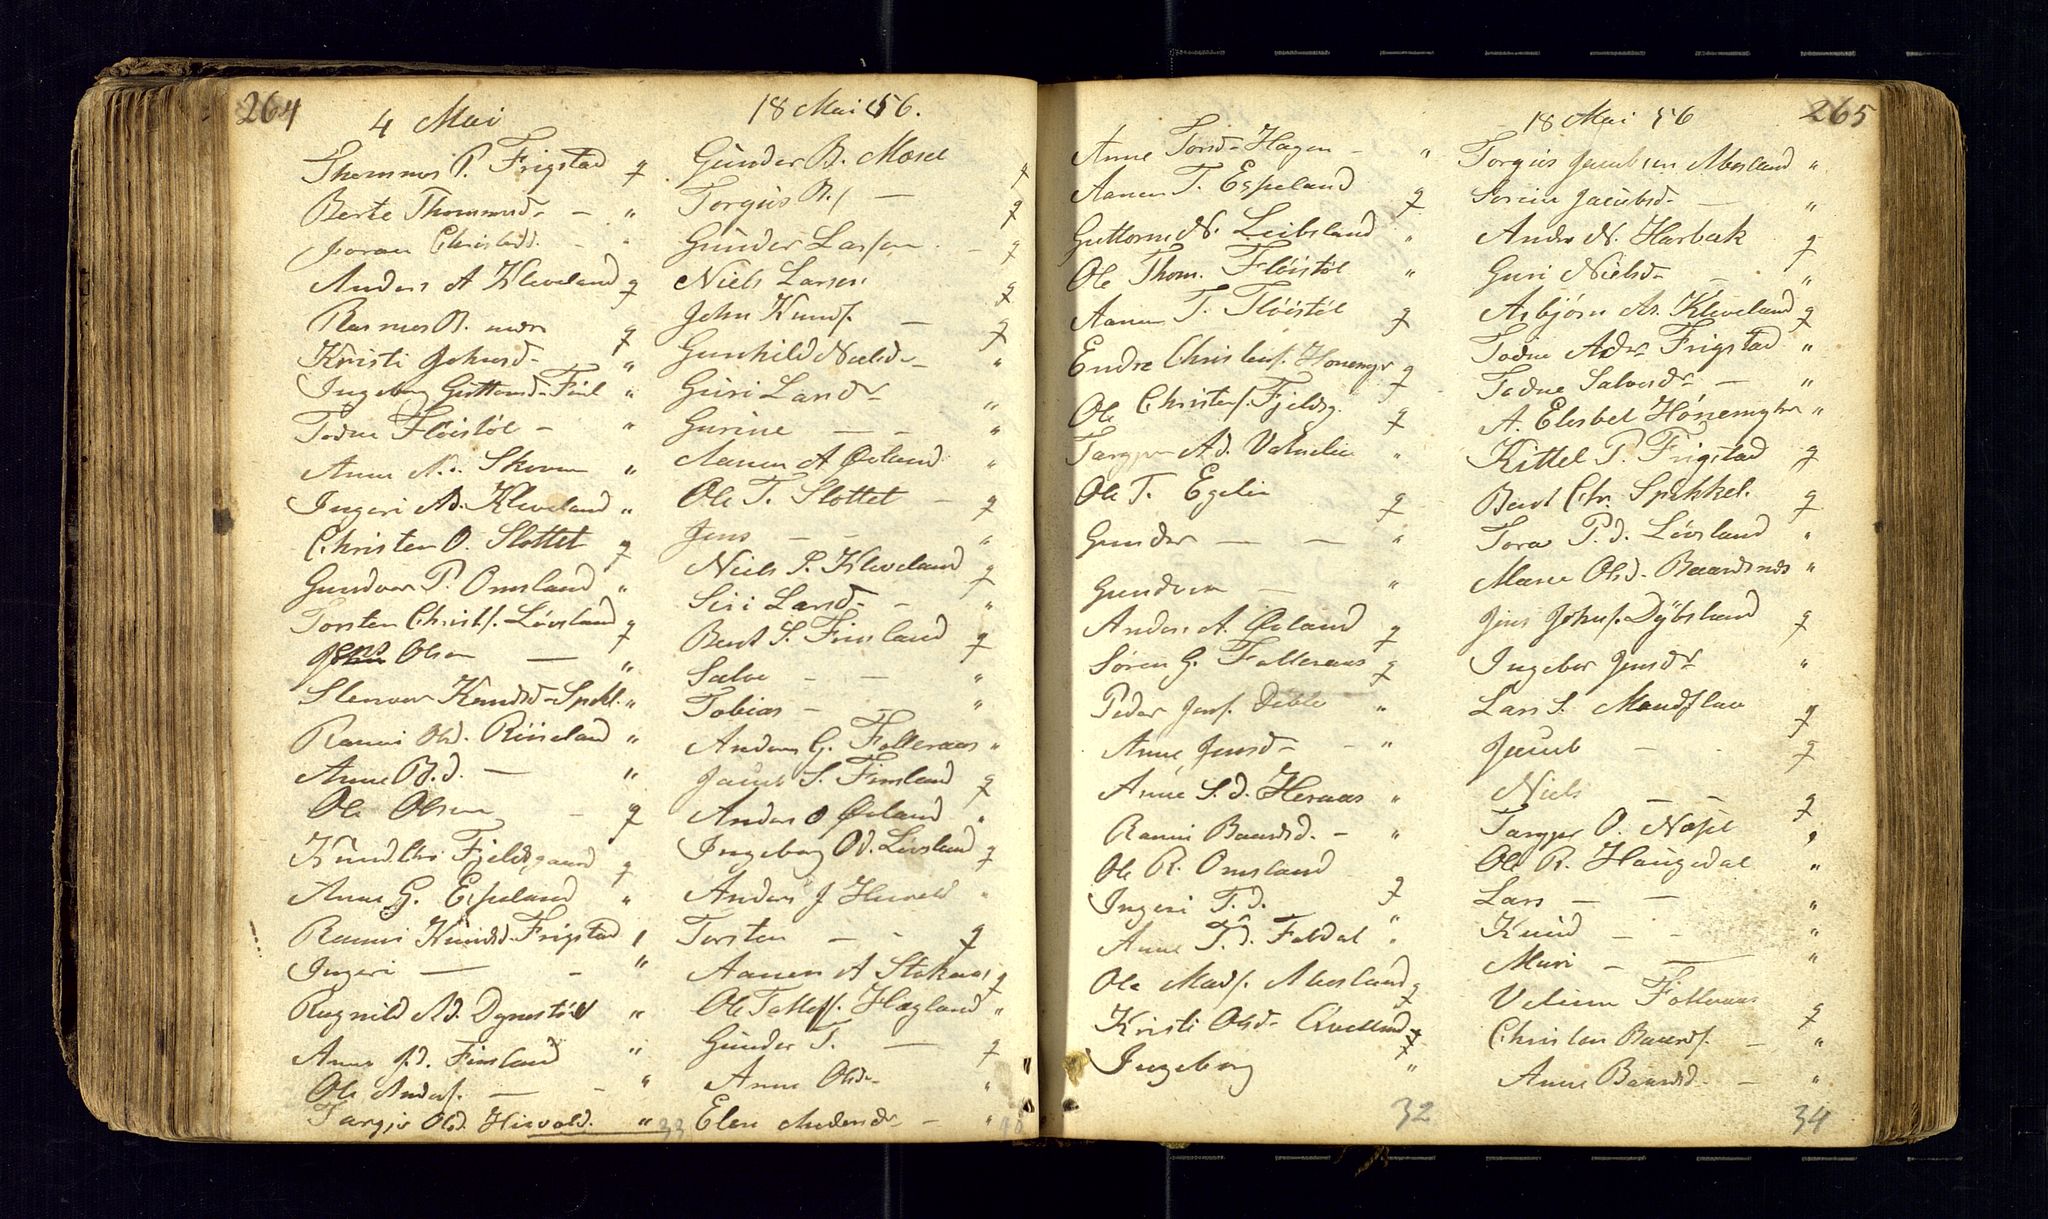 264
4 Mai
Thommes P. Frigstad g
Berte Thommesd. — "
Joran Christensd. - "
Anders A Kleveland g
Rasmus B. g
Kristi Johnsd. "
Ingeborg Guttormsd. "
Todne Fløistøl — "
Anne "
Ingeri Ad. Kleveland "
Christen O. Slottet g
Gundvor P. Omsland "
Torsten Christs. Løvsland g
Jens Olsen — "
Stenvor Knudsd. "
Ranni Olsd. Røiseland "
Anne B.d. — "
Ole Olsen - g
Knud Chr Fjeldsgaard g
Anne G. Espeland "
Ranni Knudsd. Frigstad "
Ingeri — - "
Ragnild Ad. Dynestøl "
Anne Finsland "
Ole Anders. — - "
Targjer Olsd. Hisvold. "
33
18 Mai 56.
Gunder B. Mosel g
Torgius B. — g
Gunder Larsen - g
Niels Larsen g
John Knuds. — g
Gunhild Nielsd. "
Guri Larsd. "
Gurine — — "
Aanen A Øvland "
Ole T. Slottet - g
Jens — - "
Niels P. Kleveland g
Siri Larsd. - "
Bent S. Finsland g
Salve - - "
Tobias — - "
Anders G. Folleraas "
Jacob S. Finsland g
Anders O Øvland "
Ingeborg Od. Løvsland g
Anders J "
Torsten — - g
Aanen A Stokaas g
Ole Tolless. Hægland "
Gunder T. — g
Anne Olsd. "
Elen — "
18 Mai 56
265
Anne Torsd. Hagen — "
Aanen T. Espeland g
Guttorm N. Leibsland "
Ole Thom. Fløistøl "
Aanen T. Fløistøl g
Endre Christens. Honemyr g
Ole Christens. Fjeldsg. g
Targjer Ad. "
Ole T. Egelie g
Gunder — — "
Gundvor — "
Anders A. Øvland g
Søren G. Folleraas g
Peder Jens. "
Anne Jensd. - "
Anne S.d. Heraas "
Ranni Baardsd. — "
Ole R. Omsland g
Ingeri T.d. "
Anne T.d. Foldal "
Ole Mads. Mosland g
Kristi Olsd. Qvelland g
Ingeborg "
32
Torgius Jacobsen Mosland "
Sorine Jacobsd. — "
Andr. N. Harbak g
Guri Nielsd. — "
Asbjørn As. Kleveland g
Todne Adr. Frigstad "
Todne Salvesdr. — "
A. Elisbet Hønemyhr "
Kittel P. Frigstad g
Bent Chr. Spikkel. g
Tora P.d. Løvsland "
Maren Olsd. Baardsnes "
Jens Johns. Dybsland g
Ingebor Jensdr "
Lars S. Mandflaa g
Jacob — - g
Niels — — g
Targjer O. "
Ole R. Haugedal "
Lars — — "
Knud — - "
Mari — — "
Folleraas g
Christen Baards. — "
Anne Baardsd. — "
34